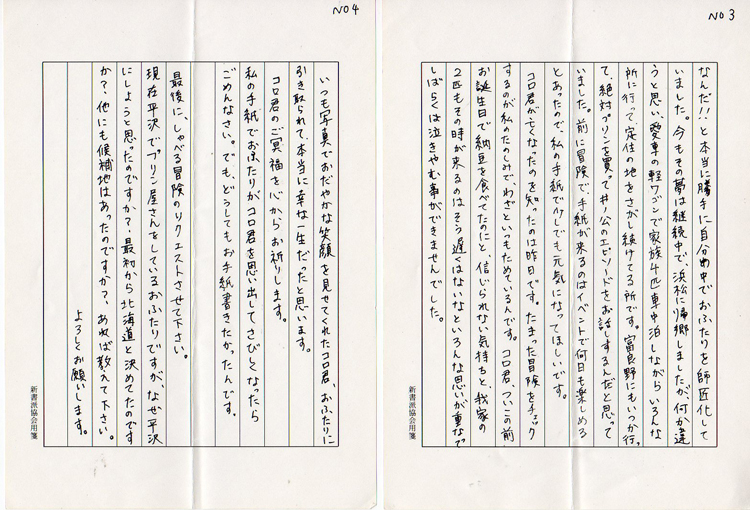 NO3
なんだ!!と本当に勝手に自分の中でおふたりを師匠化して
いました。今もその夢は継続中で、浜松に帰郷しましたが、何か違
うと思い、愛車の軽ワゴンで家族4匹車中泊しながらいろんな
所に行って定住の地をさがし続けてる所です。富良野にもいつか行っ
て、絶対プリンを買って井ノ公のエピソードをお話しするんだと思って
いました。前に冒険で手紙が来るのはイベントで何日も楽しめる
とあったので、私の手紙で少しでも元気になってほしいです。
コロ君が亡くなったのを知ったのは昨日です。たまった冒険をチェック
するのが私のたのしみで、わざといつもためているんです。コロ君、ついこの前
お誕生日で納豆を食べてたのにと信じられない気持ちと、我家の
2匹もその時が来るのはそう遅くはないなといろんな思いが重なって
しばらくは泣きやむ事ができませんでした。
新書派協会用箋
NO4
いつも写真でおだやかな笑顔を見せてくれたコロ君、おふたりに
引き取られて、本当に幸な一生だったと思います。
コロ君のご冥福を心からお祈りします。
私の手紙でおふたりがコロ君を思い出してさびしくなったら
ごめんなさい。でも、どうしてもお手紙書きたかったんです。
最後に、しゃべる冒険のリクエストさせて下さい。
現在平沢でプリン屋さんをしているおふたりですが、なぜ平沢
にしようと思ったのですか?最初から北海道と決めてたのです
か?、他にも候補地はあったのですか?、あれば教えて下さい。
よろしくお願いします。
新書派協会用箋